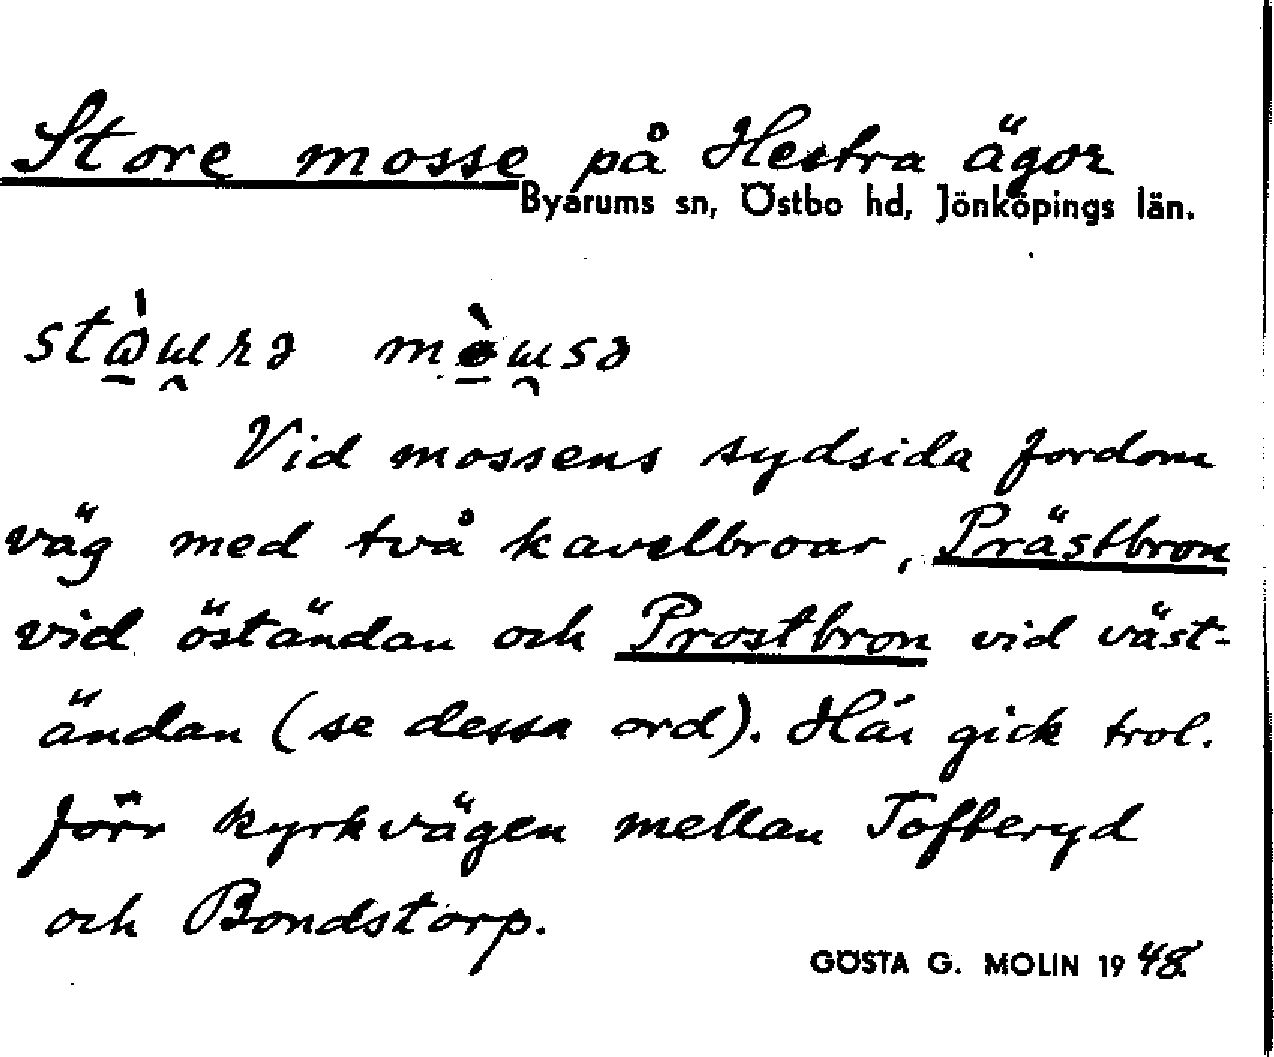 Store mosse på Hestra ägor
Byarums sn, Östbo hd, Jönköpings län.
Vid mossens sydsida fordom
väg med två kavelbroar, Prästbron
vid öständan och Prostbron vid väst-
ändan (se dessa ord). Här gick trol.
förr kyrkvägen mellan Tofteryd
och Bondstorp.
GÖSTA G. MOLIN 1948.